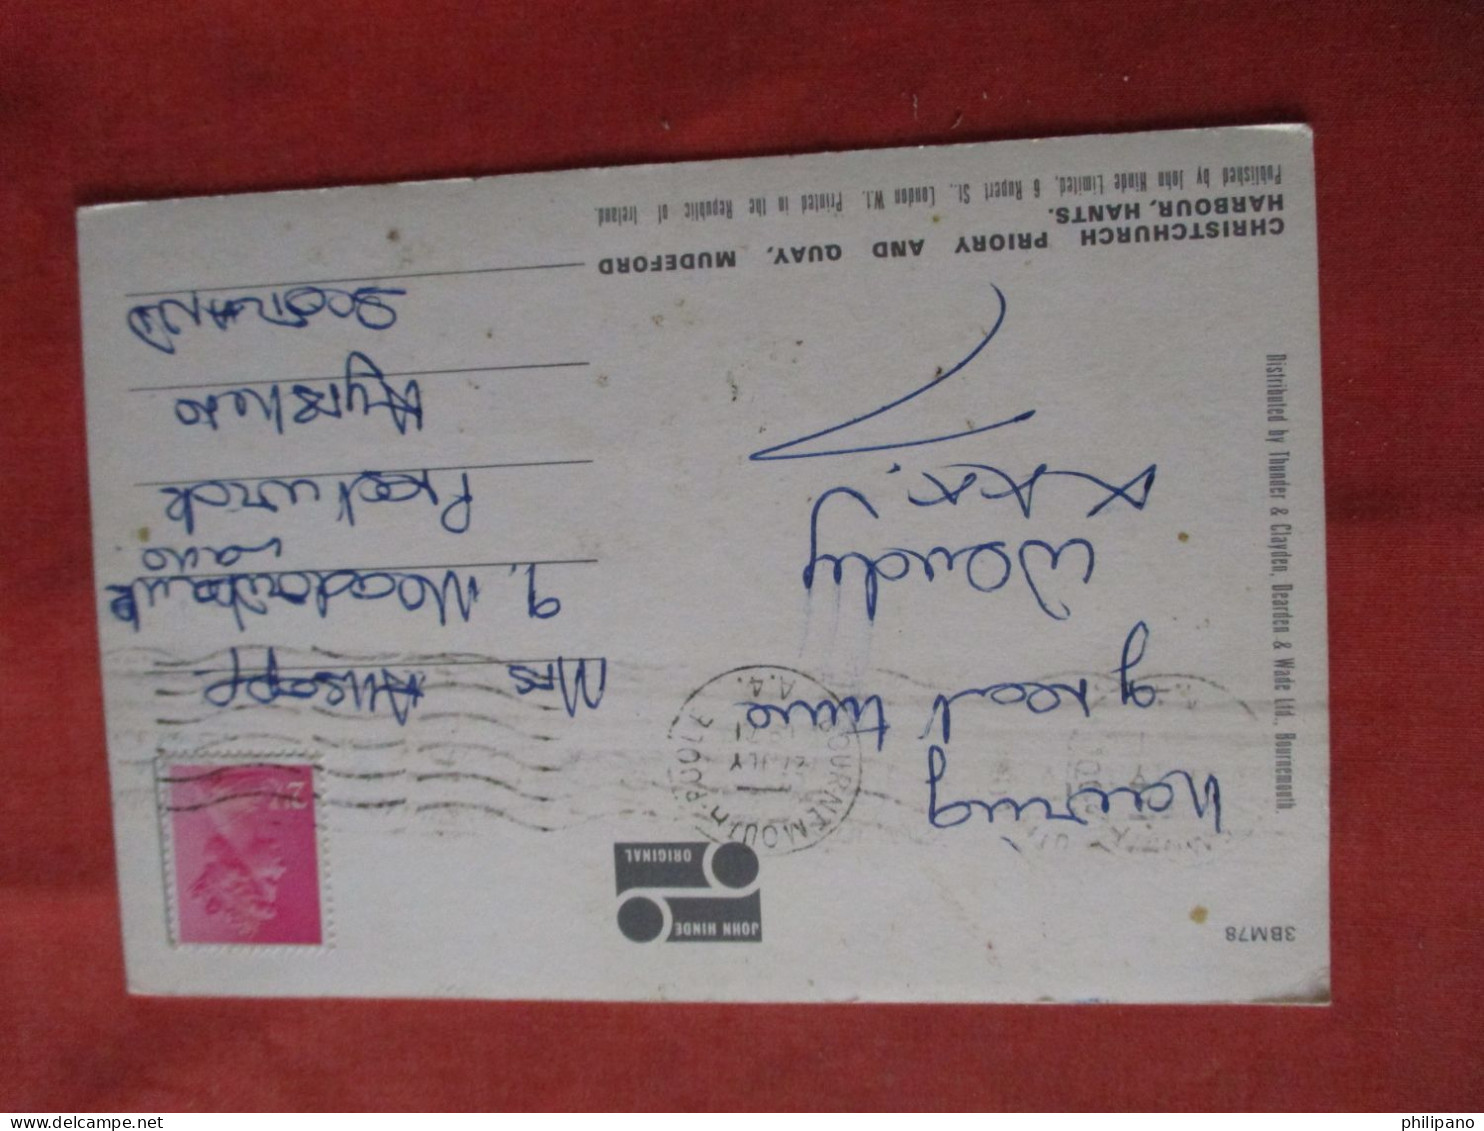 3BM78
JOHN HINDE
ORIGINAL
having
great time
Wendy
xxx.
BOURNEMOUTH-POOLE
JLY
1971
A.4.
2½P
Mrs Allsopp
9, Meadowbank
Prestwick
Ayrshire
SCOTLAND
Distributed by Thunder & Clayden, Dearden & Wade Ltd., Bournemouth.
CHRISTCHURCH PRIORY AND QUAY, MUDEFORD
HARBOUR, HANTS.
Published by John Hinde Limited, 6 Rupert St., London W.1. Printed in the Republic of Ireland.
philipano